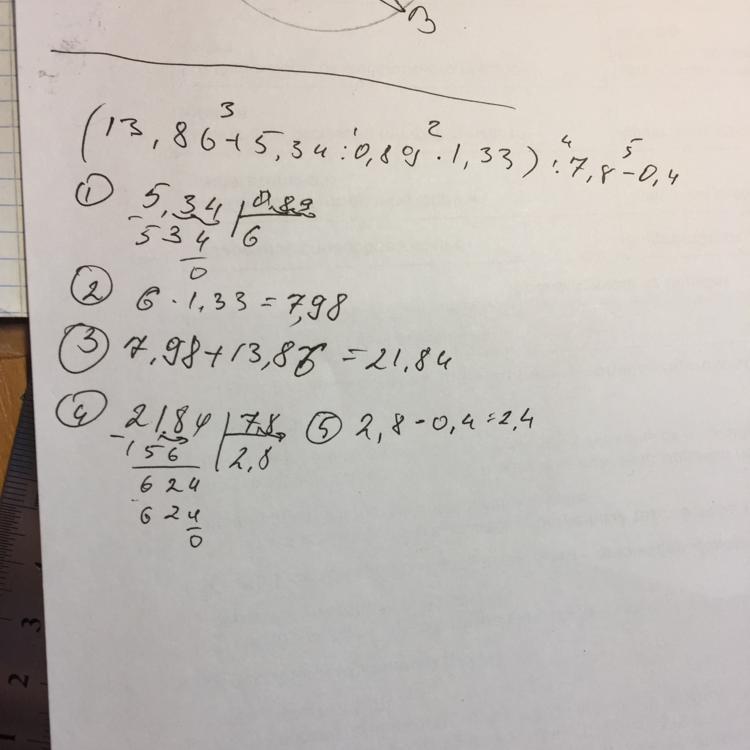 B
3 1 2 4 5
(13,86+5,34:0,89·1,33):7,8-0,4
① 5,34 | 0,89
-534 | 6
0
② 6·1,33=7,98
③ 7,98+13,86=21,84
④ 21,84 | 7,8 ⑤ 2,8-0,4=2,4
-156 | 2,8
624
-624
0
3
2